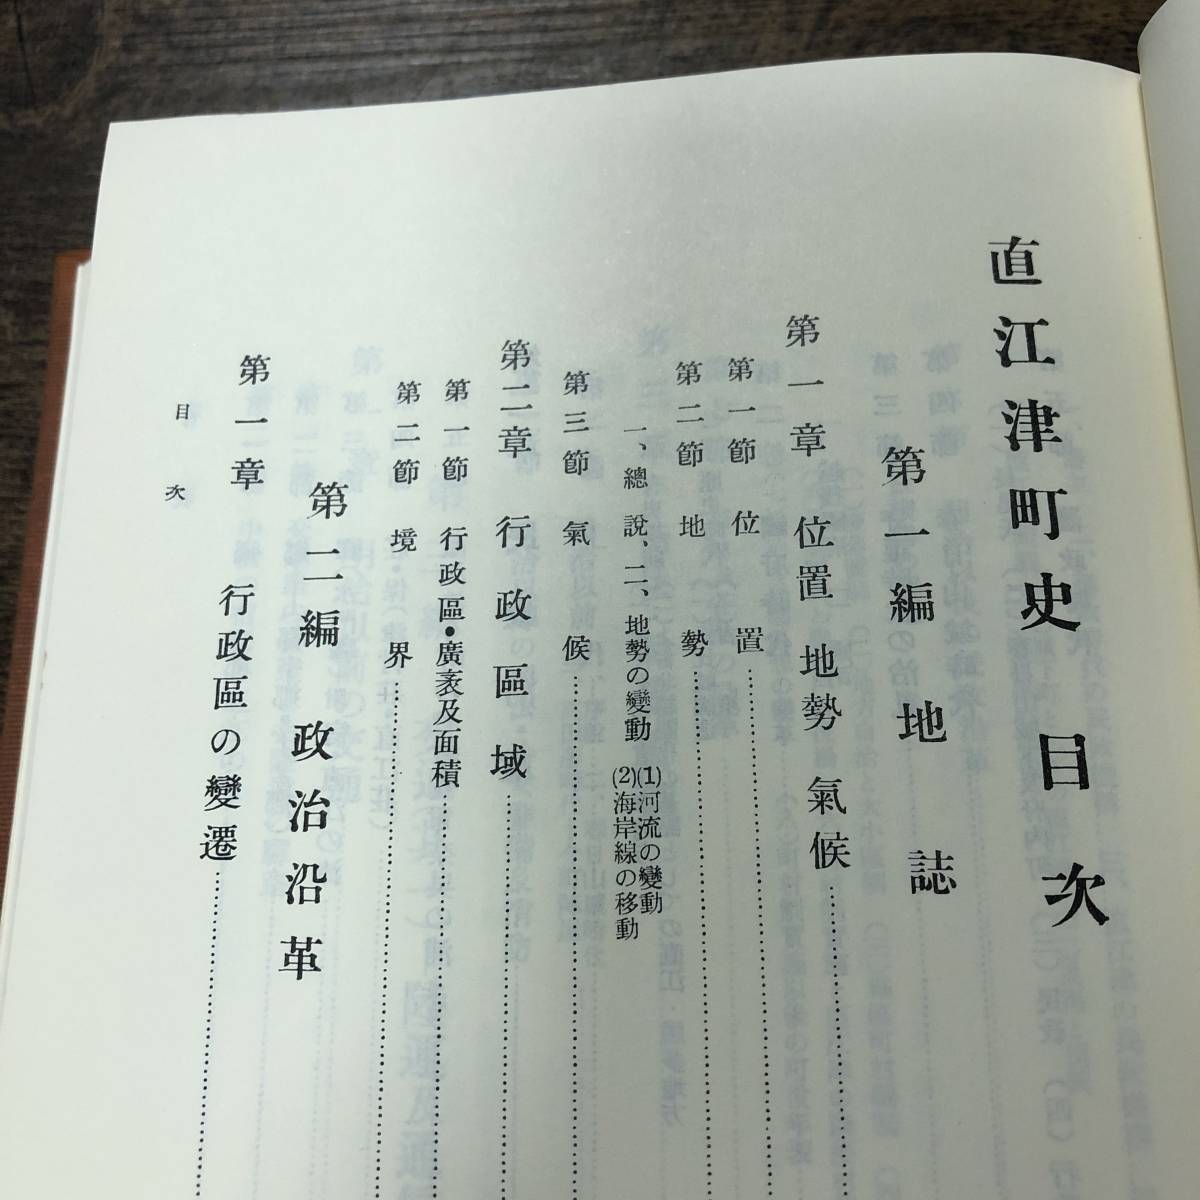 直江津町史 目次
第一編 地誌
第一章 位置 地勢 氣候
第一節 位置
第二節 地勢
一、總說、二、地勢の變動 (1)河流の變動
(2)海岸線の移動
第三節 氣候
第二章 行政區域
第一節 行政區・廣袤及面積
第二節 境界
第二編 政治沿革
第一章 行政區の變遷
目次